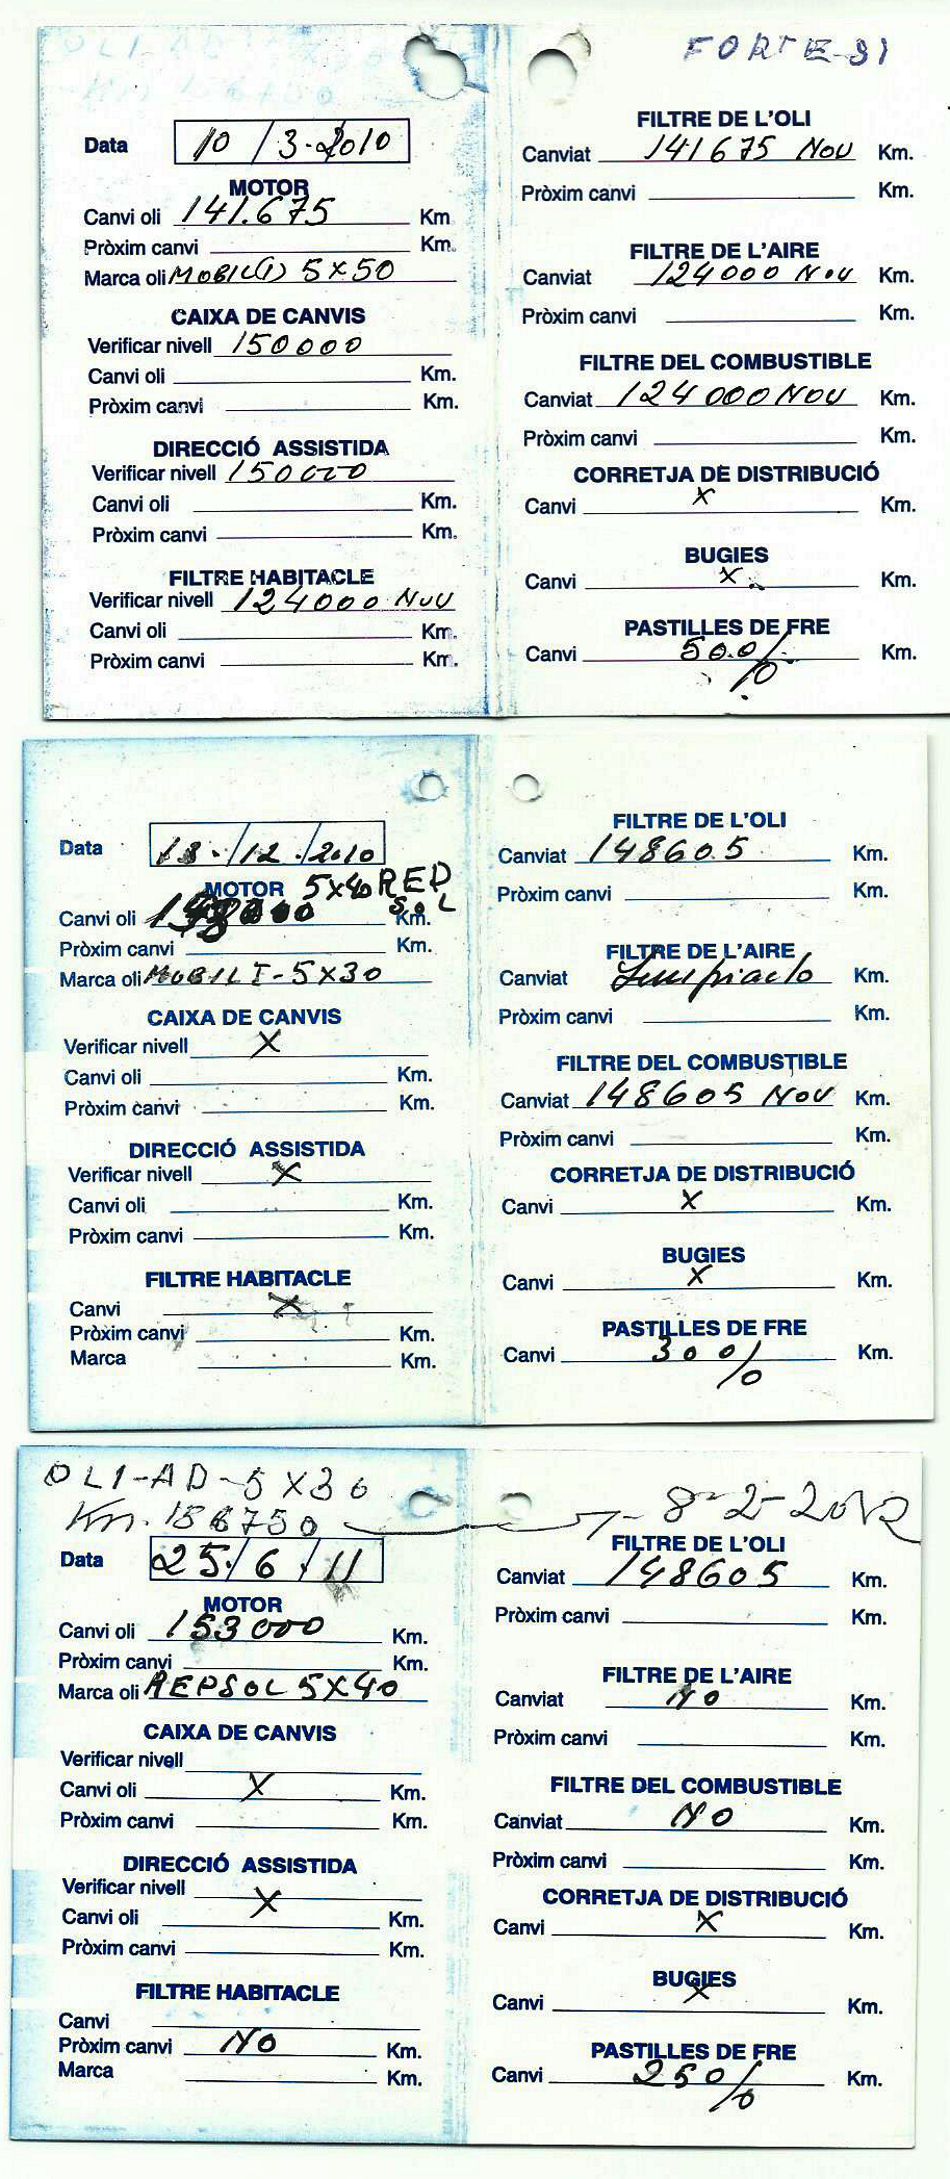 FORTE-91
Data 10/3-2010
MOTOR
Canvi oli 141.675 Km
Pròxim canvi Km.
Marca oli MOBIL(1) 5X50
CAIXA DE CANVIS
Verificar nivell 150000
Canvi oli Km.
Pròxim canvi Km.
DIRECCIÓ ASSISTIDA
Verificar nivell 150000
Canvi oli Km.
Pròxim canvi Km.
FILTRE HABITACLE
Verificar nivell 124000 NOU
Canvi oli Km.
Pròxim canvi Km.
FILTRE DE L'OLI
Canviat 141675 NOU Km.
Pròxim canvi Km.
FILTRE DE L'AIRE
Canviat 124000 NOU Km.
Pròxim canvi Km.
FILTRE DEL COMBUSTIBLE
Canviat 124000 NOU Km.
Pròxim canvi Km.
CORRETJA DE DISTRIBUCIÓ
Canvi X Km.
BUGIES
Canvi X Km.
PASTILLES DE FRE
Canvi 50 % Km.
Data 18./12./2010
MOTOR 5X40 REP
SOL
Canvi oli Km.
Pròxim canvi Km.
Marca oli MOBIL I-5X30
CAIXA DE CANVIS
Verificar nivell X
Canvi oli Km.
Pròxim canvi Km.
DIRECCIÓ ASSISTIDA
Verificar nivell X
Canvi oli Km.
Pròxim canvi Km.
FILTRE HABITACLE
Canvi X
Pròxim canvi Km.
Marca Km.
FILTRE DE L'OLI
Canviat 148605 Km.
Pròxim canvi Km.
FILTRE DE L'AIRE
Canviat Limpiado Km.
Pròxim canvi Km.
FILTRE DEL COMBUSTIBLE
Canviat 148605 NOU Km.
Pròxim canvi Km.
CORRETJA DE DISTRIBUCIÓ
Canvi X Km.
BUGIES
Canvi X Km.
PASTILLES DE FRE
Canvi 30 % Km.
OLI-AD-5X30
Km. 156750 - 8-2-2012
Data 25./6/11
MOTOR
Canvi oli 153000 Km.
Pròxim canvi Km.
Marca oli REPSOL 5X40
CAIXA DE CANVIS
Verificar nivell
Canvi oli X Km.
Pròxim canvi Km.
DIRECCIÓ ASSISTIDA
Verificar nivell X
Canvi oli Km.
Pròxim canvi Km.
FILTRE HABITACLE
Canvi
Pròxim canvi NO Km.
Marca Km.
FILTRE DE L'OLI
Canviat 148605 Km.
Pròxim canvi Km.
FILTRE DE L'AIRE
Canviat NO Km.
Pròxim canvi Km.
FILTRE DEL COMBUSTIBLE
Canviat NO Km.
Pròxim canvi Km.
CORRETJA DE DISTRIBUCIÓ
Canvi X Km.
BUGIES
Canvi X Km.
PASTILLES DE FRE
Canvi 25 % Km.